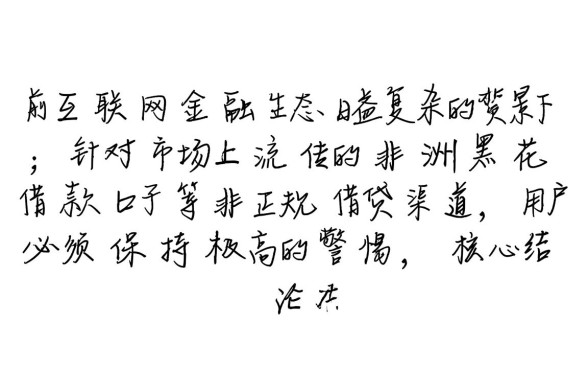 前互联网金融生态日益复杂的背景下
；针对市场上流传的非洲黑花
借款口子等非正规借贷渠道，用户
必须保持极高的警惕，核心结
论在